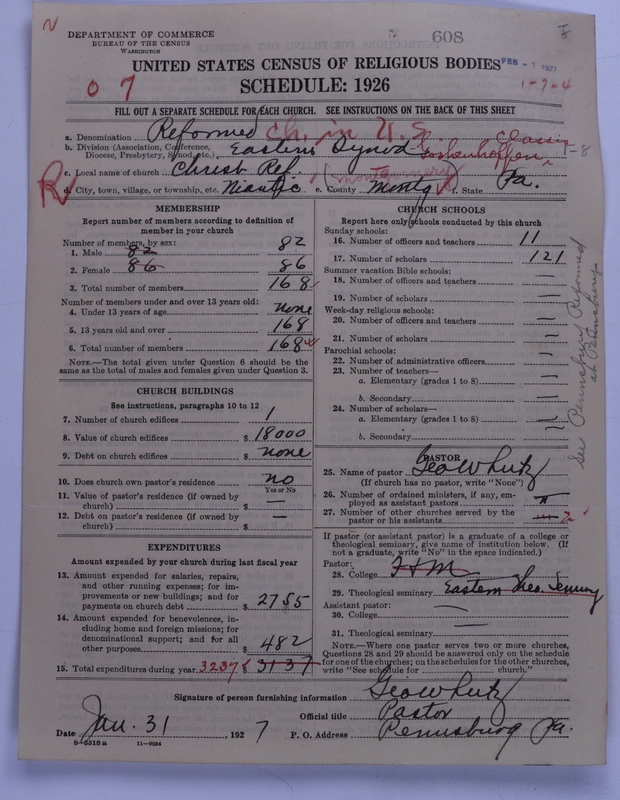 N
DEPARTMENT OF COMMERCE
BUREAU OF THE CENSUS
WASHINGTON
608
FEB - 1 1927
UNITED STATES CENSUS OF RELIGIOUS BODIES
SCHEDULE: 1926
0 7
1-7-4
FILL OUT A SEPARATE SCHEDULE FOR EACH CHURCH. SEE INSTRUCTIONS ON THE BACK OF THIS SHEET
a. Denomination Reformed Ch. in U. S.
b. Division (Association, Conference, Diocese, Presbytery, Synod, etc.) Eastern Synod Classis Goshenhoppen - 8
c. Local name of church Christ Ref.
R
d. City, town, village, or township, etc. Niantic e. County Montg (Montgomery) f. State Pa.
MEMBERSHIP
Report number of members according to definition of
member in your church
Number of members, by sex:
1. Male 82 82
2. Female 86 86
3. Total number of members 168
Number of members under and over 13 years old:
4. Under 13 years of age none
5. 13 years old and over 168
6. Total number of members 168
NOTE.—The total given under Question 6 should be the
same as the total of males and females given under Question 3.
CHURCH BUILDINGS
See instructions, paragraphs 10 to 12
7. Number of church edifices 1
8. Value of church edifices $ 18000
9. Debt on church edifices $ none
10. Does church own pastor's residence? no
Yes or No
11. Value of pastor's residence (if owned by
church) $ —
12. Debt on pastor's residence (if owned by
church) $ —
EXPENDITURES
Amount expended by your church during last fiscal year
13. Amount expended for salaries, repairs,
and other running expenses; for im-
provements or new buildings; and for
payments on church debt $ 2755
14. Amount expended for benevolences, in-
cluding home and foreign missions; for
denominational support; and for all
other purposes $ 482
15. Total expenditures during year 3237 $ 3137
CHURCH SCHOOLS
Report here only schools conducted by this church
Sunday schools:
16. Number of officers and teachers 11
17. Number of scholars 121
Summer vacation Bible schools:
18. Number of officers and teachers —
19. Number of scholars —
Week-day religious schools:
20. Number of officers and teachers —
21. Number of scholars —
Parochial schools:
22. Number of administrative officers —
23. Number of teachers—
a. Elementary (grades 1 to 8) —
b. Secondary —
24. Number of scholars—
a. Elementary (grades 1 to 8) —
b. Secondary —
See Pennsburg Reformed
at Pennsburg
PASTOR
25. Name of pastor Geo W Lutz
(If church has no pastor, write "None")
26. Number of ordained ministers, if any, em-
ployed as assistant pastors
27. Number of other churches served by the
pastor or his assistants 2
If pastor (or assistant pastor) is a graduate of a college or
theological seminary, give name of institution below. (If
not a graduate, write "No" in the space indicated.)
Pastor:
28. College F & M
29. Theological seminary Eastern Theo. Seminary
Assistant pastor:
30. College —
31. Theological seminary —
NOTE.—Where one pastor serves two or more churches,
Questions 28 and 29 should be answered only on the schedule
for one of the churches; on the schedules for the other churches,
write "See schedule for church."
Signature of person furnishing information Geo W Lutz
Official title Pastor
Date Jan. 31, 1927 P. O. Address Pennsburg Pa.
8-5518a 11-9054